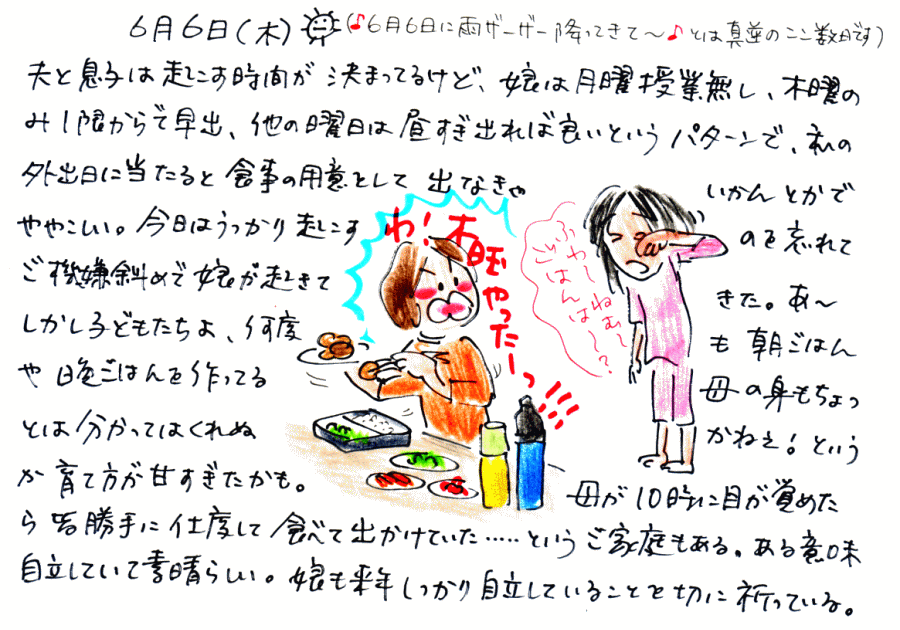 6月6日(木) (♪6月6日に雨ザーザー降ってきて〜♪とは真逆のここ数日です)
夫と息子は起こす時間が決まってるけど、娘は月曜授業無し、木曜の
み1限からで早出、他の曜日は昼すぎ出れば良いというパターンで、私の
外出日に当たると食事の用意をして出なきゃ いかんとかで
ややこしい。今日はうっかり起こす のを忘れて
ご機嫌斜めで娘が起きて きた。あ〜
しかし子どもたちよ、何度 も朝ごはん
や晩ごはんを作ってる 母の身もちょっ
とは分かってはくれぬ かねえ!という
か育て方が甘すぎたかも。 母が10時に目が覚めた
ら皆勝手に仕度して食べて出かけていた……というご家庭もある。ある意味
自立していて素晴らしい。娘も来年しっかり自立していることを切に祈っている。
わ!木曜やったーっ!!!
ふわ〜ねぇ〜
ごはんは〜?